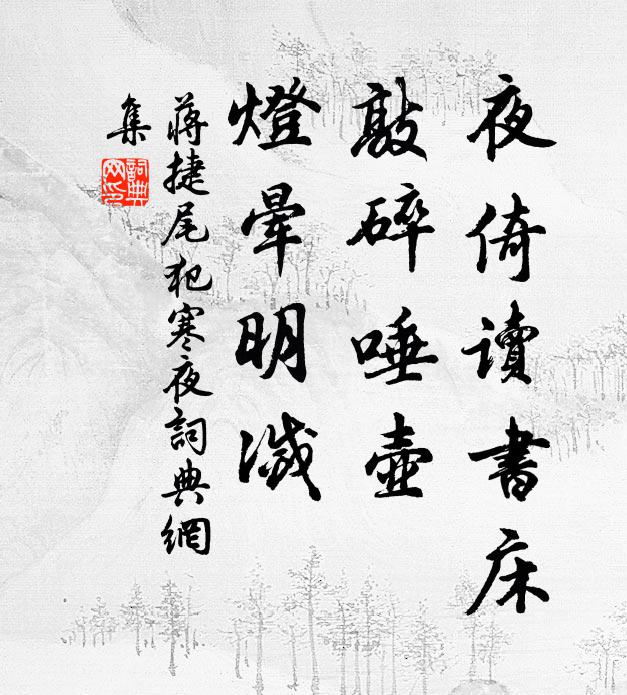 夜倚讀書床
敲碎唾壺
燈暈明滅
蔣捷尾犯寒夜詞典網
集
詞典
网印